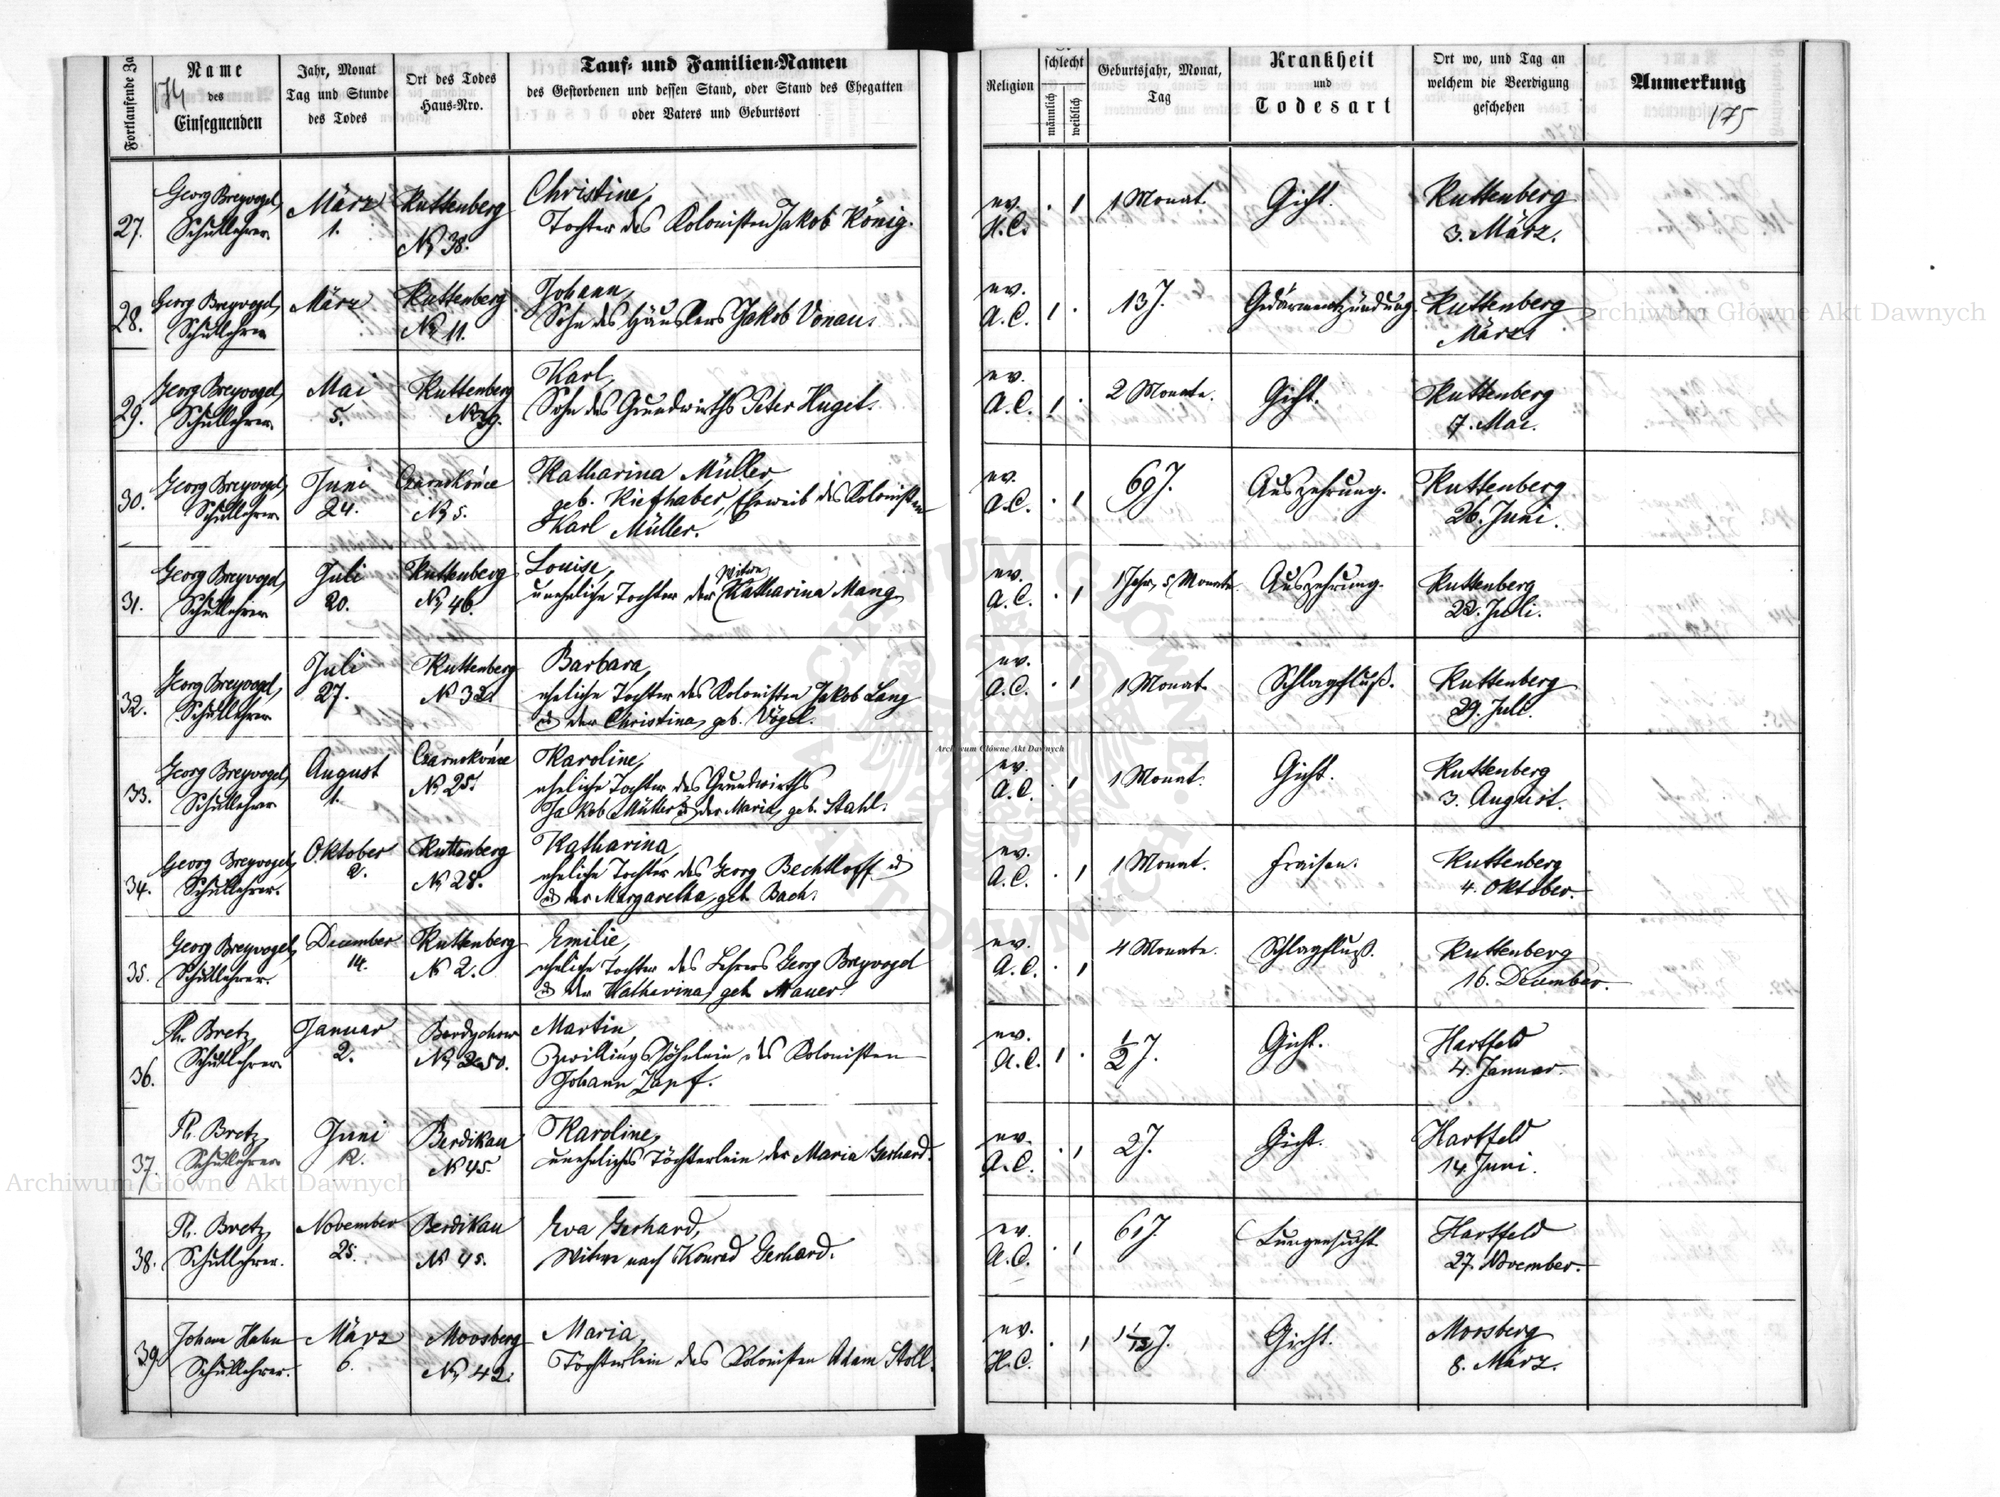 Fortlaufende Za
174
Name
des
Einsegnenden
Jahr, Monat
Tag und Stunde
des Todes
Ort des Todes
Haus-Nro.
Tauf- und Familien-Namen
des Gestorbenen und dessen Stand, oder Stand des Ehegatten
oder Vaters und Geburtsort
Religion
schlecht
männlich
weiblich
Geburtsjahr, Monat,
Tag
Krankheit
und
Todesart
Ort wo, und Tag an
welchem die Beerdigung
geschehen
Anmerkung
175
27.
Georg Breyvogel,
Schullehrer
März
1.
Ruttenberg
No 38.
Christine,
Tochter des Kolonisten Jakob König.
ev.
H.C.
. 1
1 Monat.
Gicht.
Ruttenberg
3. März.
28.
Georg Breyvogel,
Schullehrer
März
Ruttenberg
No 11.
Johann,
Sohn des Häuslers Jakob Vonau.
ev.
A.C.
1 .
13 J.
Gedärmentzündung.
Ruttenberg
März
29.
Georg Breyvogel,
Schullehrer
Mai
5.
Ruttenberg
No 39.
Karl,
Sohn des Grundwirths Peter Huget.
ev.
A.C.
1 .
2 Monate.
Gicht.
Ruttenberg
7. Mai.
30.
Georg Breyvogel,
Schullehrer
Juni
24.
Czarnokońce
No 5.
Katharina Müller,
geb. Kiefhaber, Eheweib des Kolonisten
Karl Müller.
ev.
A.C.
. 1
69 J.
Auszehrung.
Ruttenberg
26. Juni.
31.
Georg Breyvogel,
Schullehrer
Juli
20.
Ruttenberg
No 46.
Louise,
Witwe
uneheliche Tochter der Katharina Mang
ev.
A.C.
. 1
1 Jahr, 5 Monate.
Auszehrung.
Ruttenberg
22. Juli.
32.
Georg Breyvogel,
Schullehrer
Juli
27.
Ruttenberg
No 32
Barbara,
eheliche Tochter des Kolonisten Jakob Lang
u der Christina, geb. Vogel.
ev.
A.C.
. 1
1 Monat
Schlagfluß.
Ruttenberg
29. Juli.
33.
Georg Breyvogel,
Schullehrer
August
1.
Czarnokońce
No 25.
Karoline,
eheliche Tochter des Grundwirths
Jakob Müller u der Maria, geb. Stahl.
ev.
A.C.
. 1
1 Monat
Gicht.
Ruttenberg
3. August.
34.
Georg Breyvogel,
Schullehrer.
Oktober
2.
Ruttenberg
No 28.
Katharina,
eheliche Tochter des Georg Bechtloff u
u der Margaretha, geb. Bach.
ev.
A.C.
. 1
1 Monat.
Fraisen.
Ruttenberg
4. Oktober.
35.
Georg Breyvogel,
Schullehrer.
December
14.
Ruttenberg
No 2.
Emilie,
eheliche Tochter des Lehrers Georg Breyvogel
u der Katharina, geb. Mauer.
ev.
A.C.
. 1
4 Monate.
Schlagfluß.
Ruttenberg
16. December.
36.
Ph. Bretz,
Schullehrer
Januar
2.
Berdychow
No 50.
Martin,
Zwillings Söhnlein des Kolonisten
Johann Zapf.
ev.
A.C.
1 .
1/2 J.
Gicht.
Hartfeld
4. Januar.
37.
Ph. Bretz,
Schullehrer
Juni
12.
Berdikau
No 45
Karoline,
uneheliches Töchterlein der Maria Gerhard.
ev.
A.C.
. 1
2 J.
Gicht.
Hartfeld
14. Juni.
38.
Ph. Bretz,
Schullehrer.
November
25.
Berdikau
No 45.
Eva Gerhard,
Witwe nach Konrad Gerhard.
ev.
A.C.
. 1
61 J.
Lungensucht
Hartfeld
27. November.
39
Johann Hahn
Schullehrer.
März
6.
Moosberg
No 42.
Maria,
Töchterlein des Kolonisten Adam Stoll.
ev.
H.C.
. 1
1 1/12 J.
Gicht.
Moosberg
8. März.
Archiwum Główne Akt Dawnych
Archiwum Główne Akt Dawnych
Archiwum Główne Akt Dawnych
ARCHIWUM GŁÓWNE AKT DAWNYCH